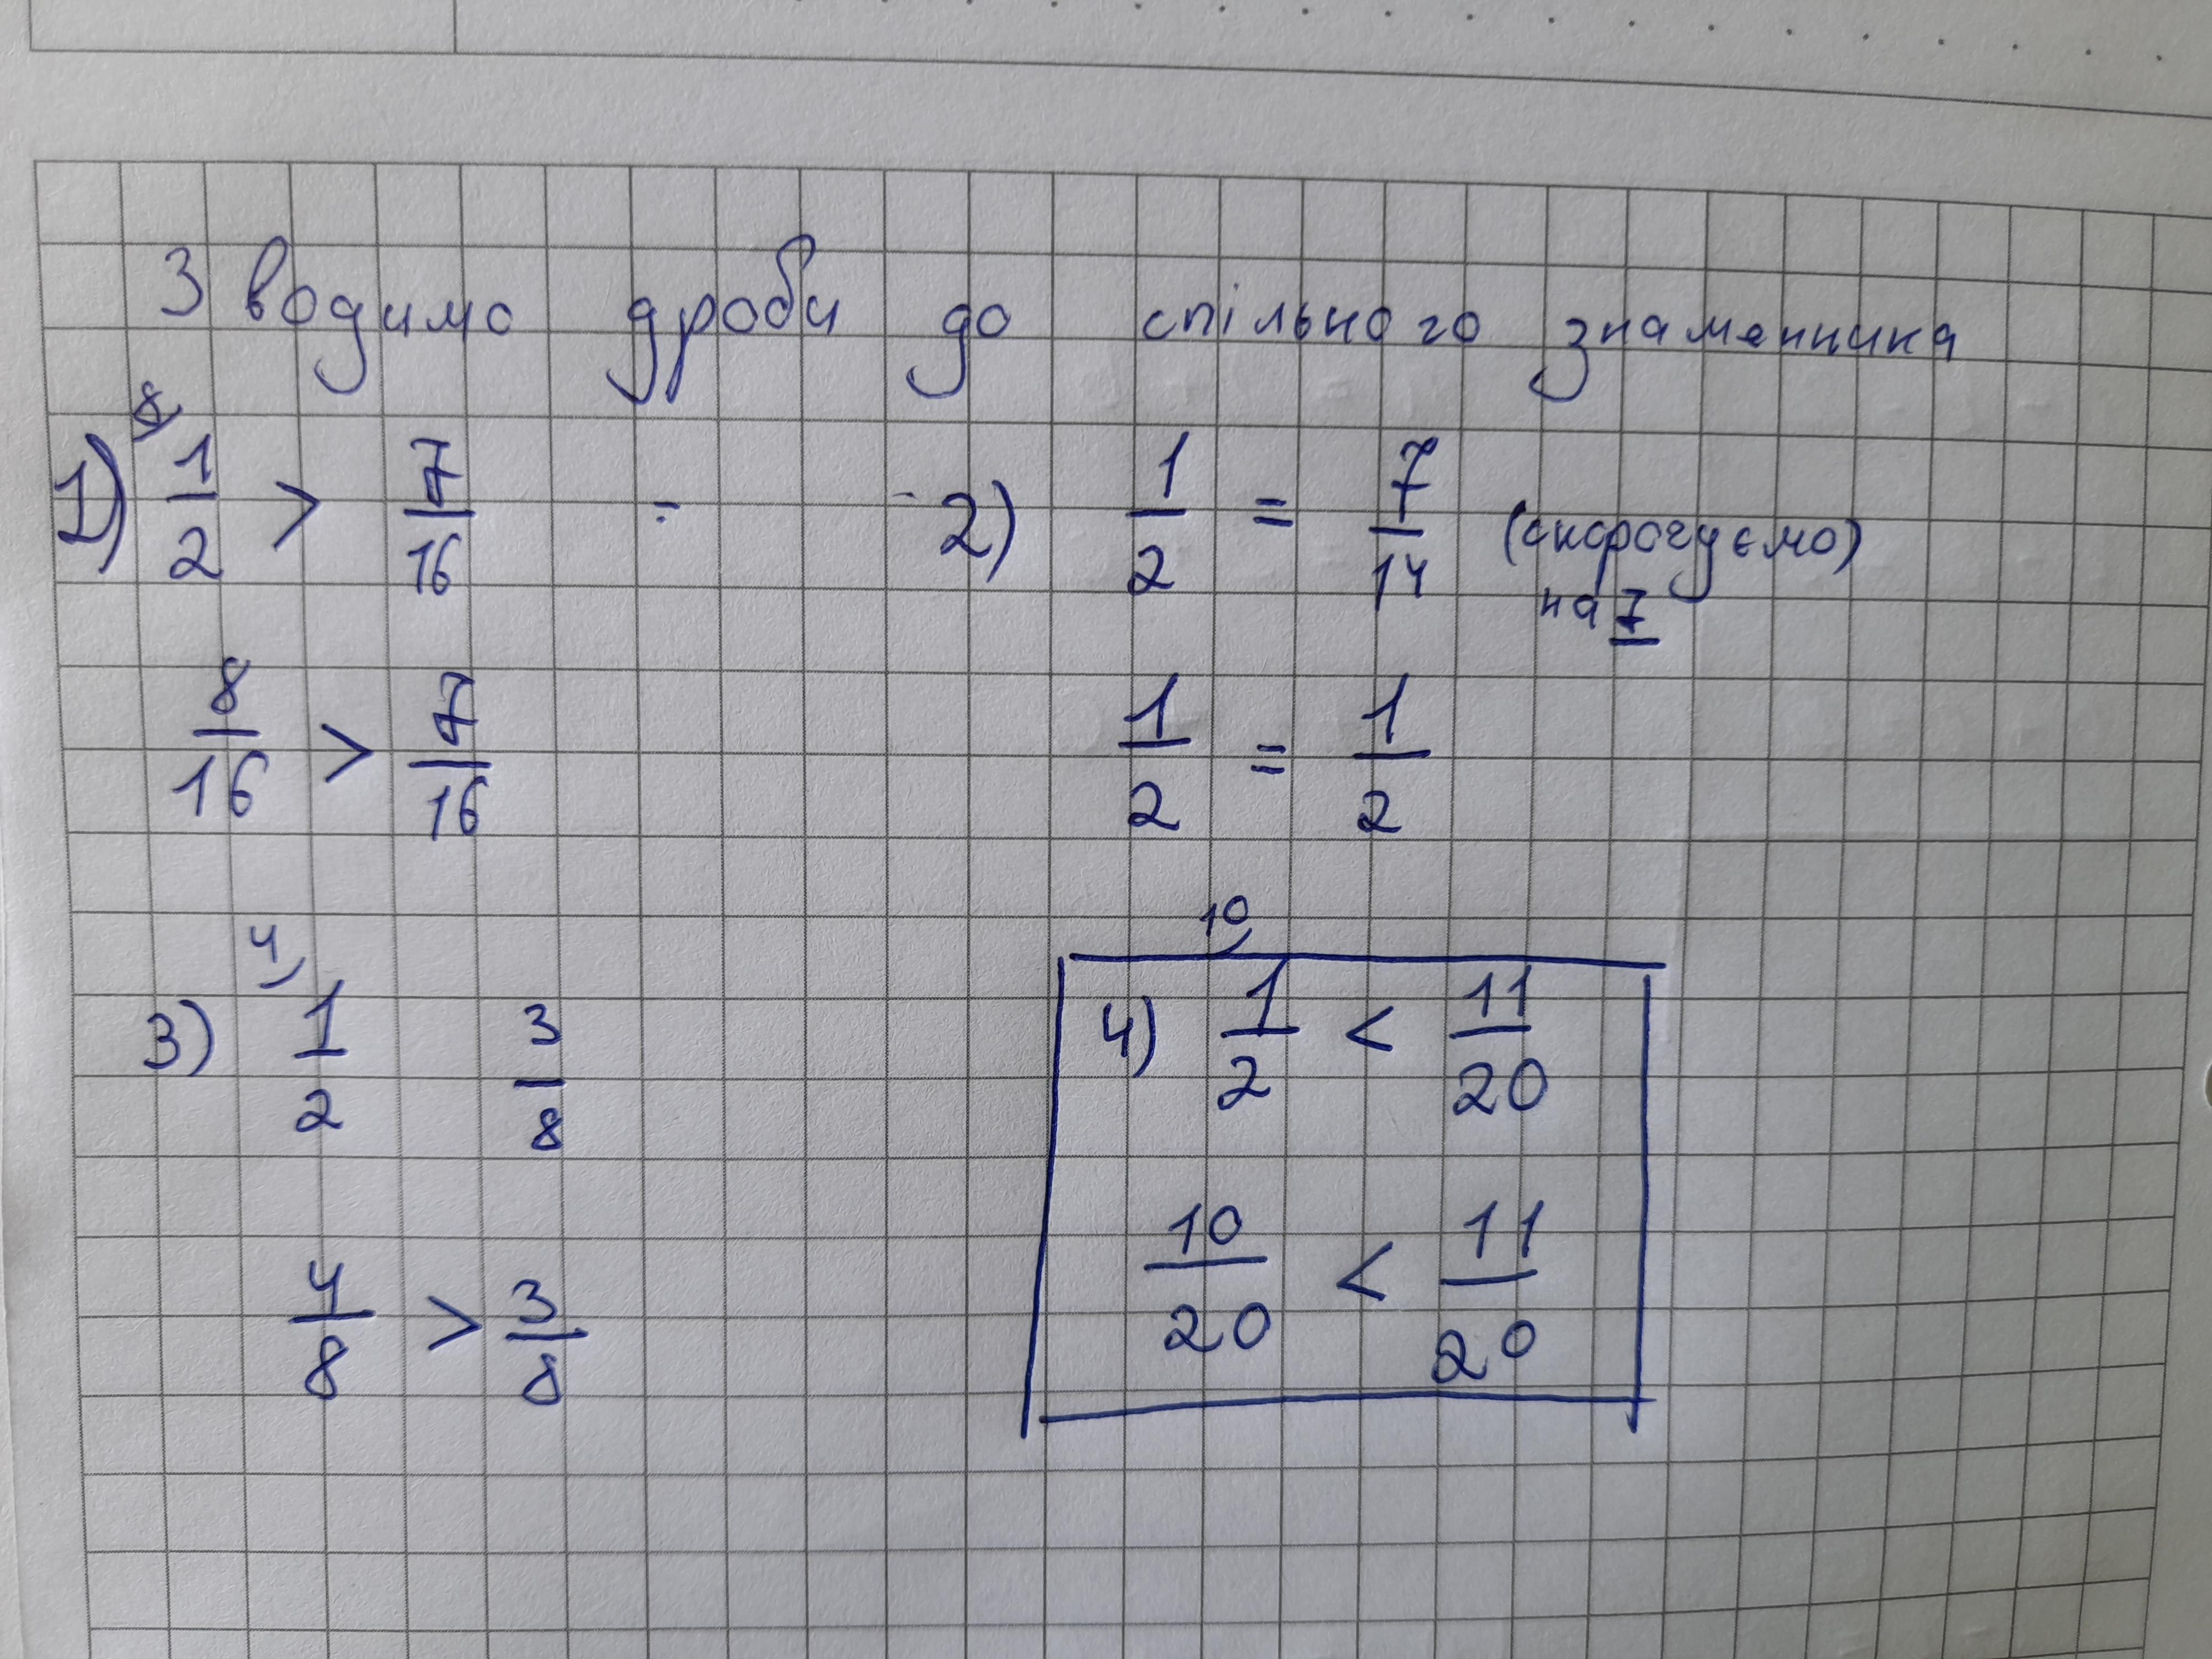 Зводимо дроби до спільного знаменника
1) 8) 1/2 > 7/16
8/16 > 7/16
2) 1/2 = 7/14 (скорочуємо)
на 7
1/2 = 1/2
3) 4) 1/2 3/8
4/8 > 3/8
10)
4) 1/2 < 11/20
10/20 < 11/20